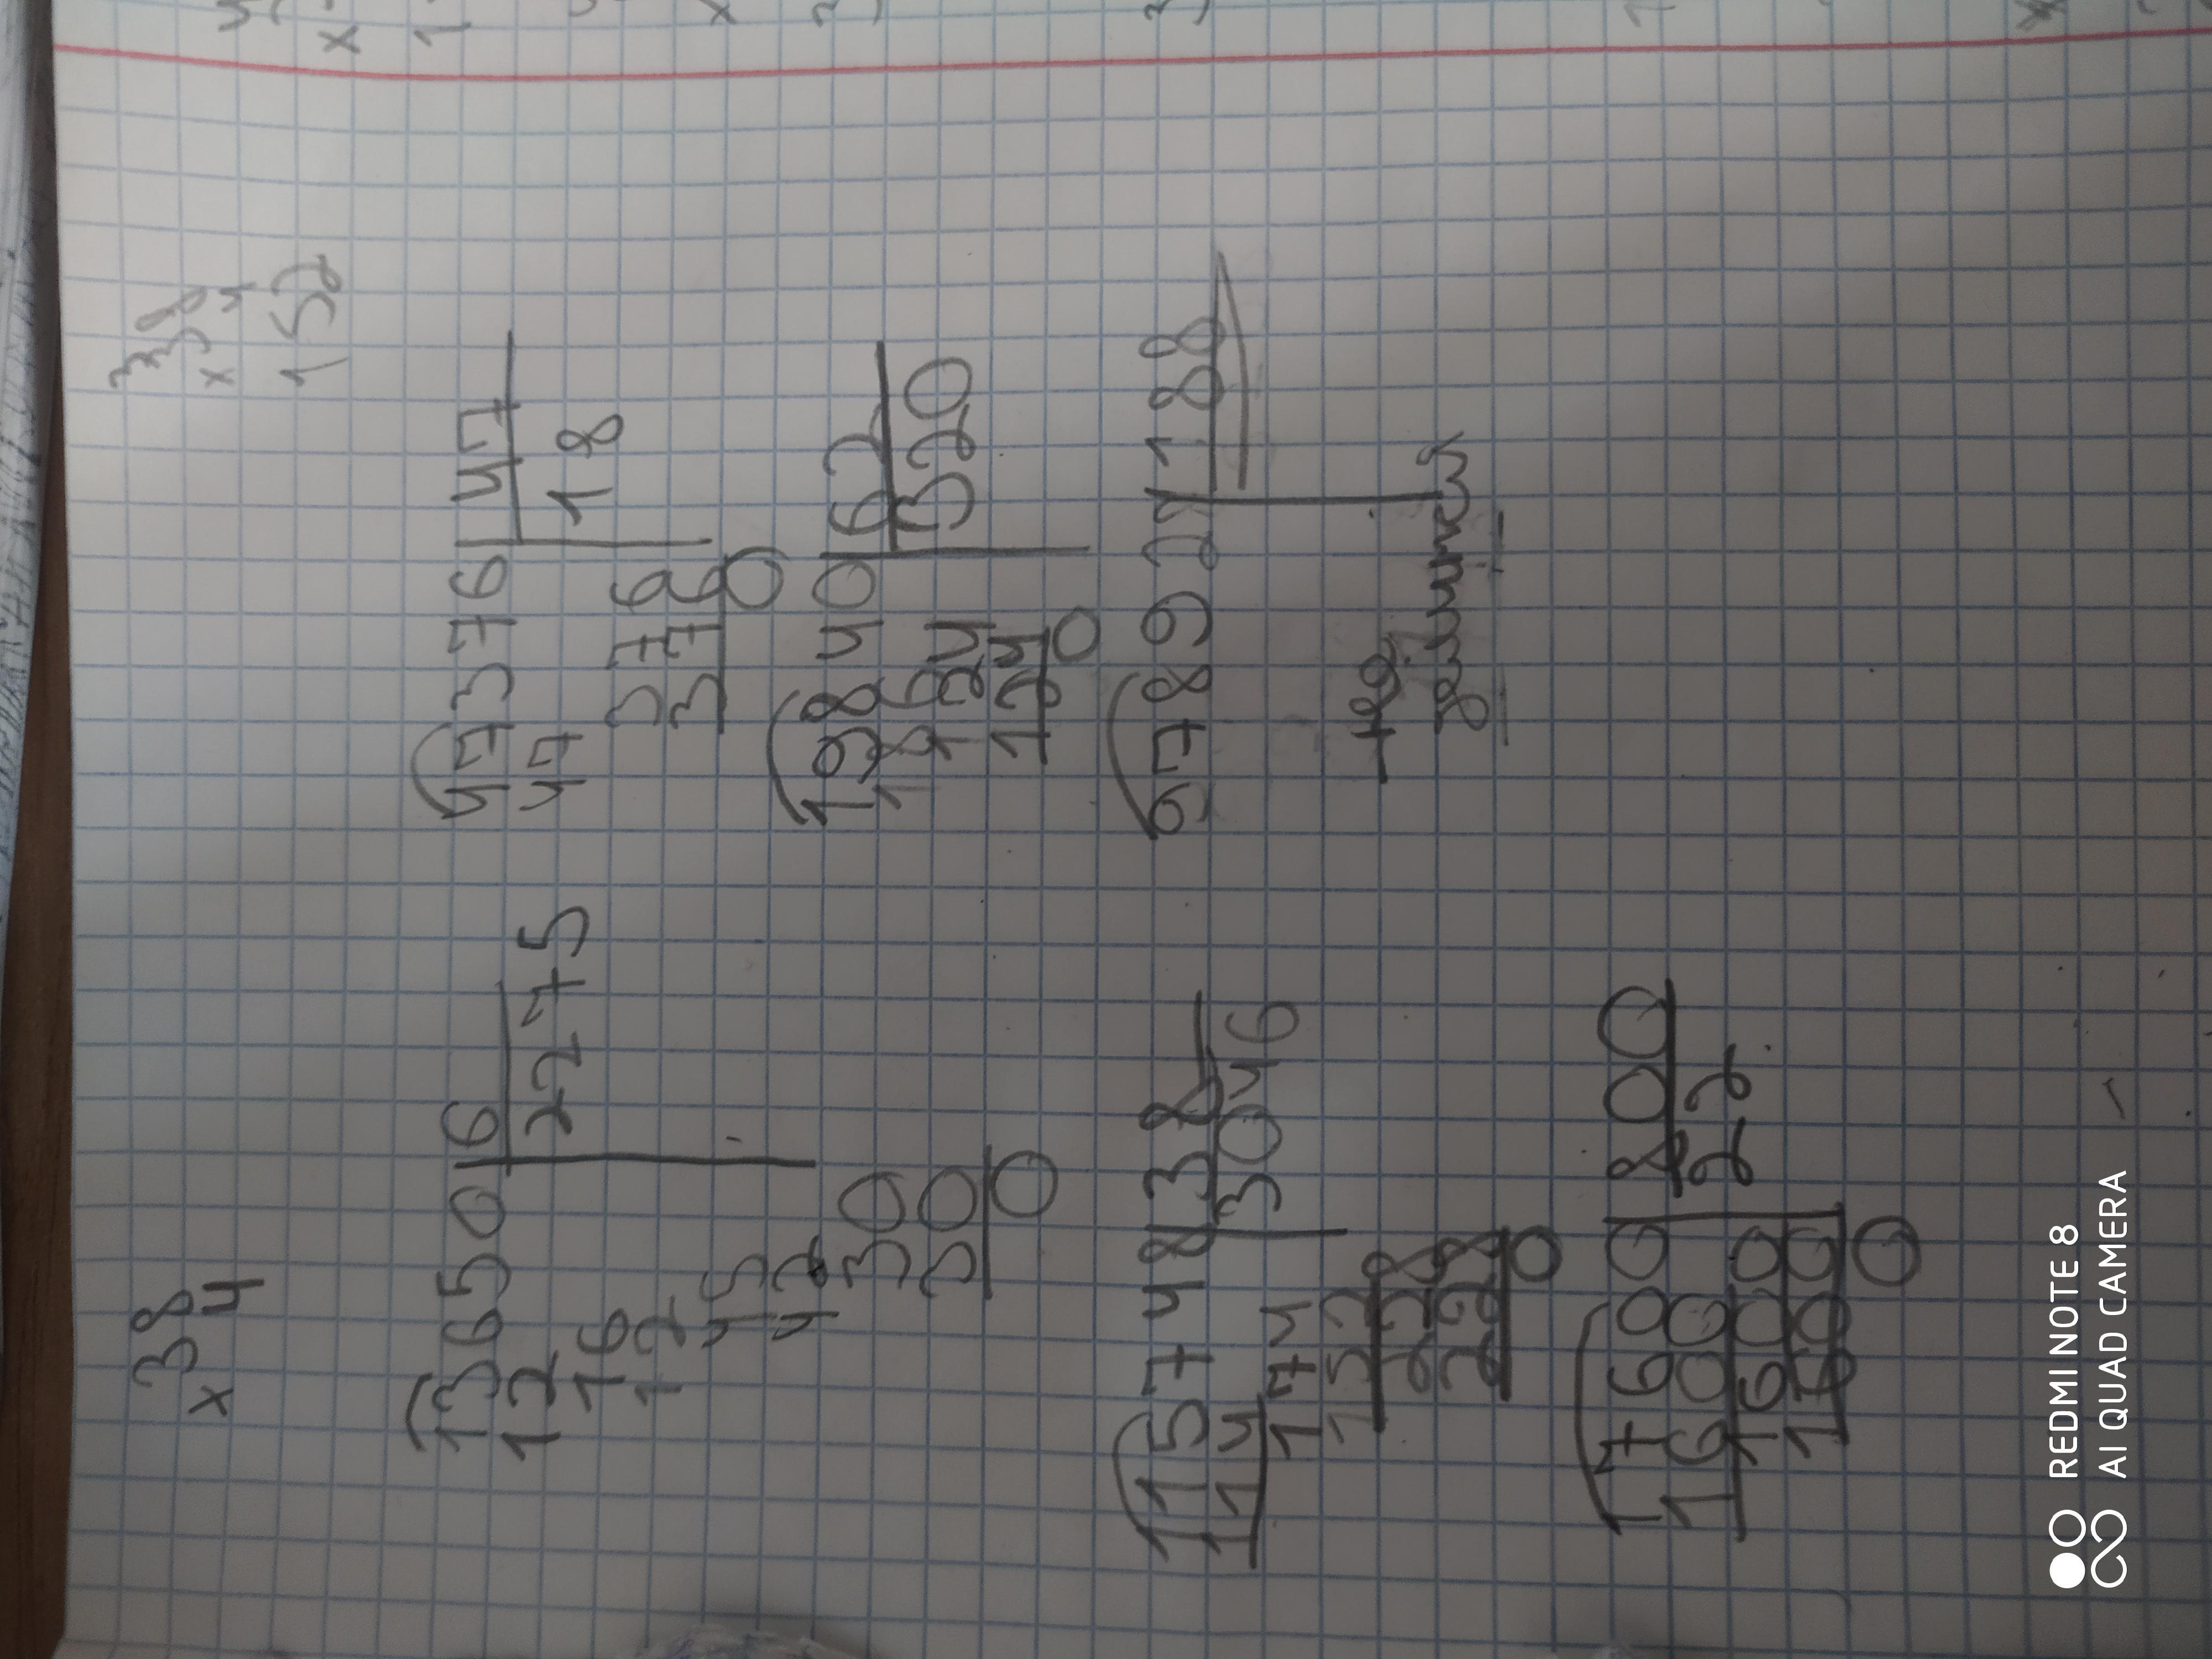 38
× 4
13650 6
12 2275
16
12
45
42
30
30
0
115748 38
114 3046
174
152
228
228
0
17600 800
1600 22
1600
1600
0
3
38
× 4
152
47376 47
47 18
376
376
0
19840 62
186 320
124
124
0
97892 188
не
REDMI NOTE 8
AI QUAD CAMERA